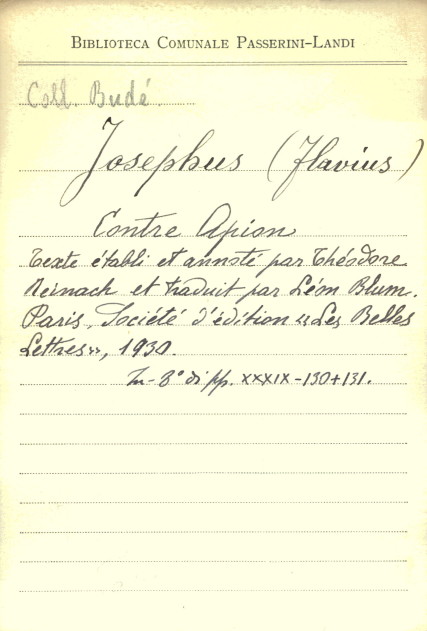 BIBLIOTECA COMUNALE PASSERINI-LANDI
Coll. Budé.
Josephus (Flavius)
Contre Apion
Texte établi et annoté par Théodore
Reinach et traduit par Léon Blum.
Paris, Société d'édition «Les Belles
Lettres», 1930.
In-8° di pp. XXXIX-130+131.